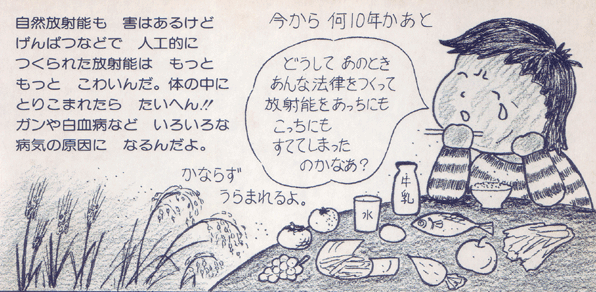 自然放射能も 害はあるけど
げんぱつなどで 人工的に
つくられた放射能は もっと
もっと こわいんだ。体の中に
とりこまれたら たいへん!!
ガンや白血病など いろいろな
病気の原因に なるんだよ。
今から 何10年かあと
どうして あのとき
あんな法律をつくって
放射能をあっちにも
こっちにも
すててしまった
のかなあ?
かならず
うらまれるよ。
牛乳
水